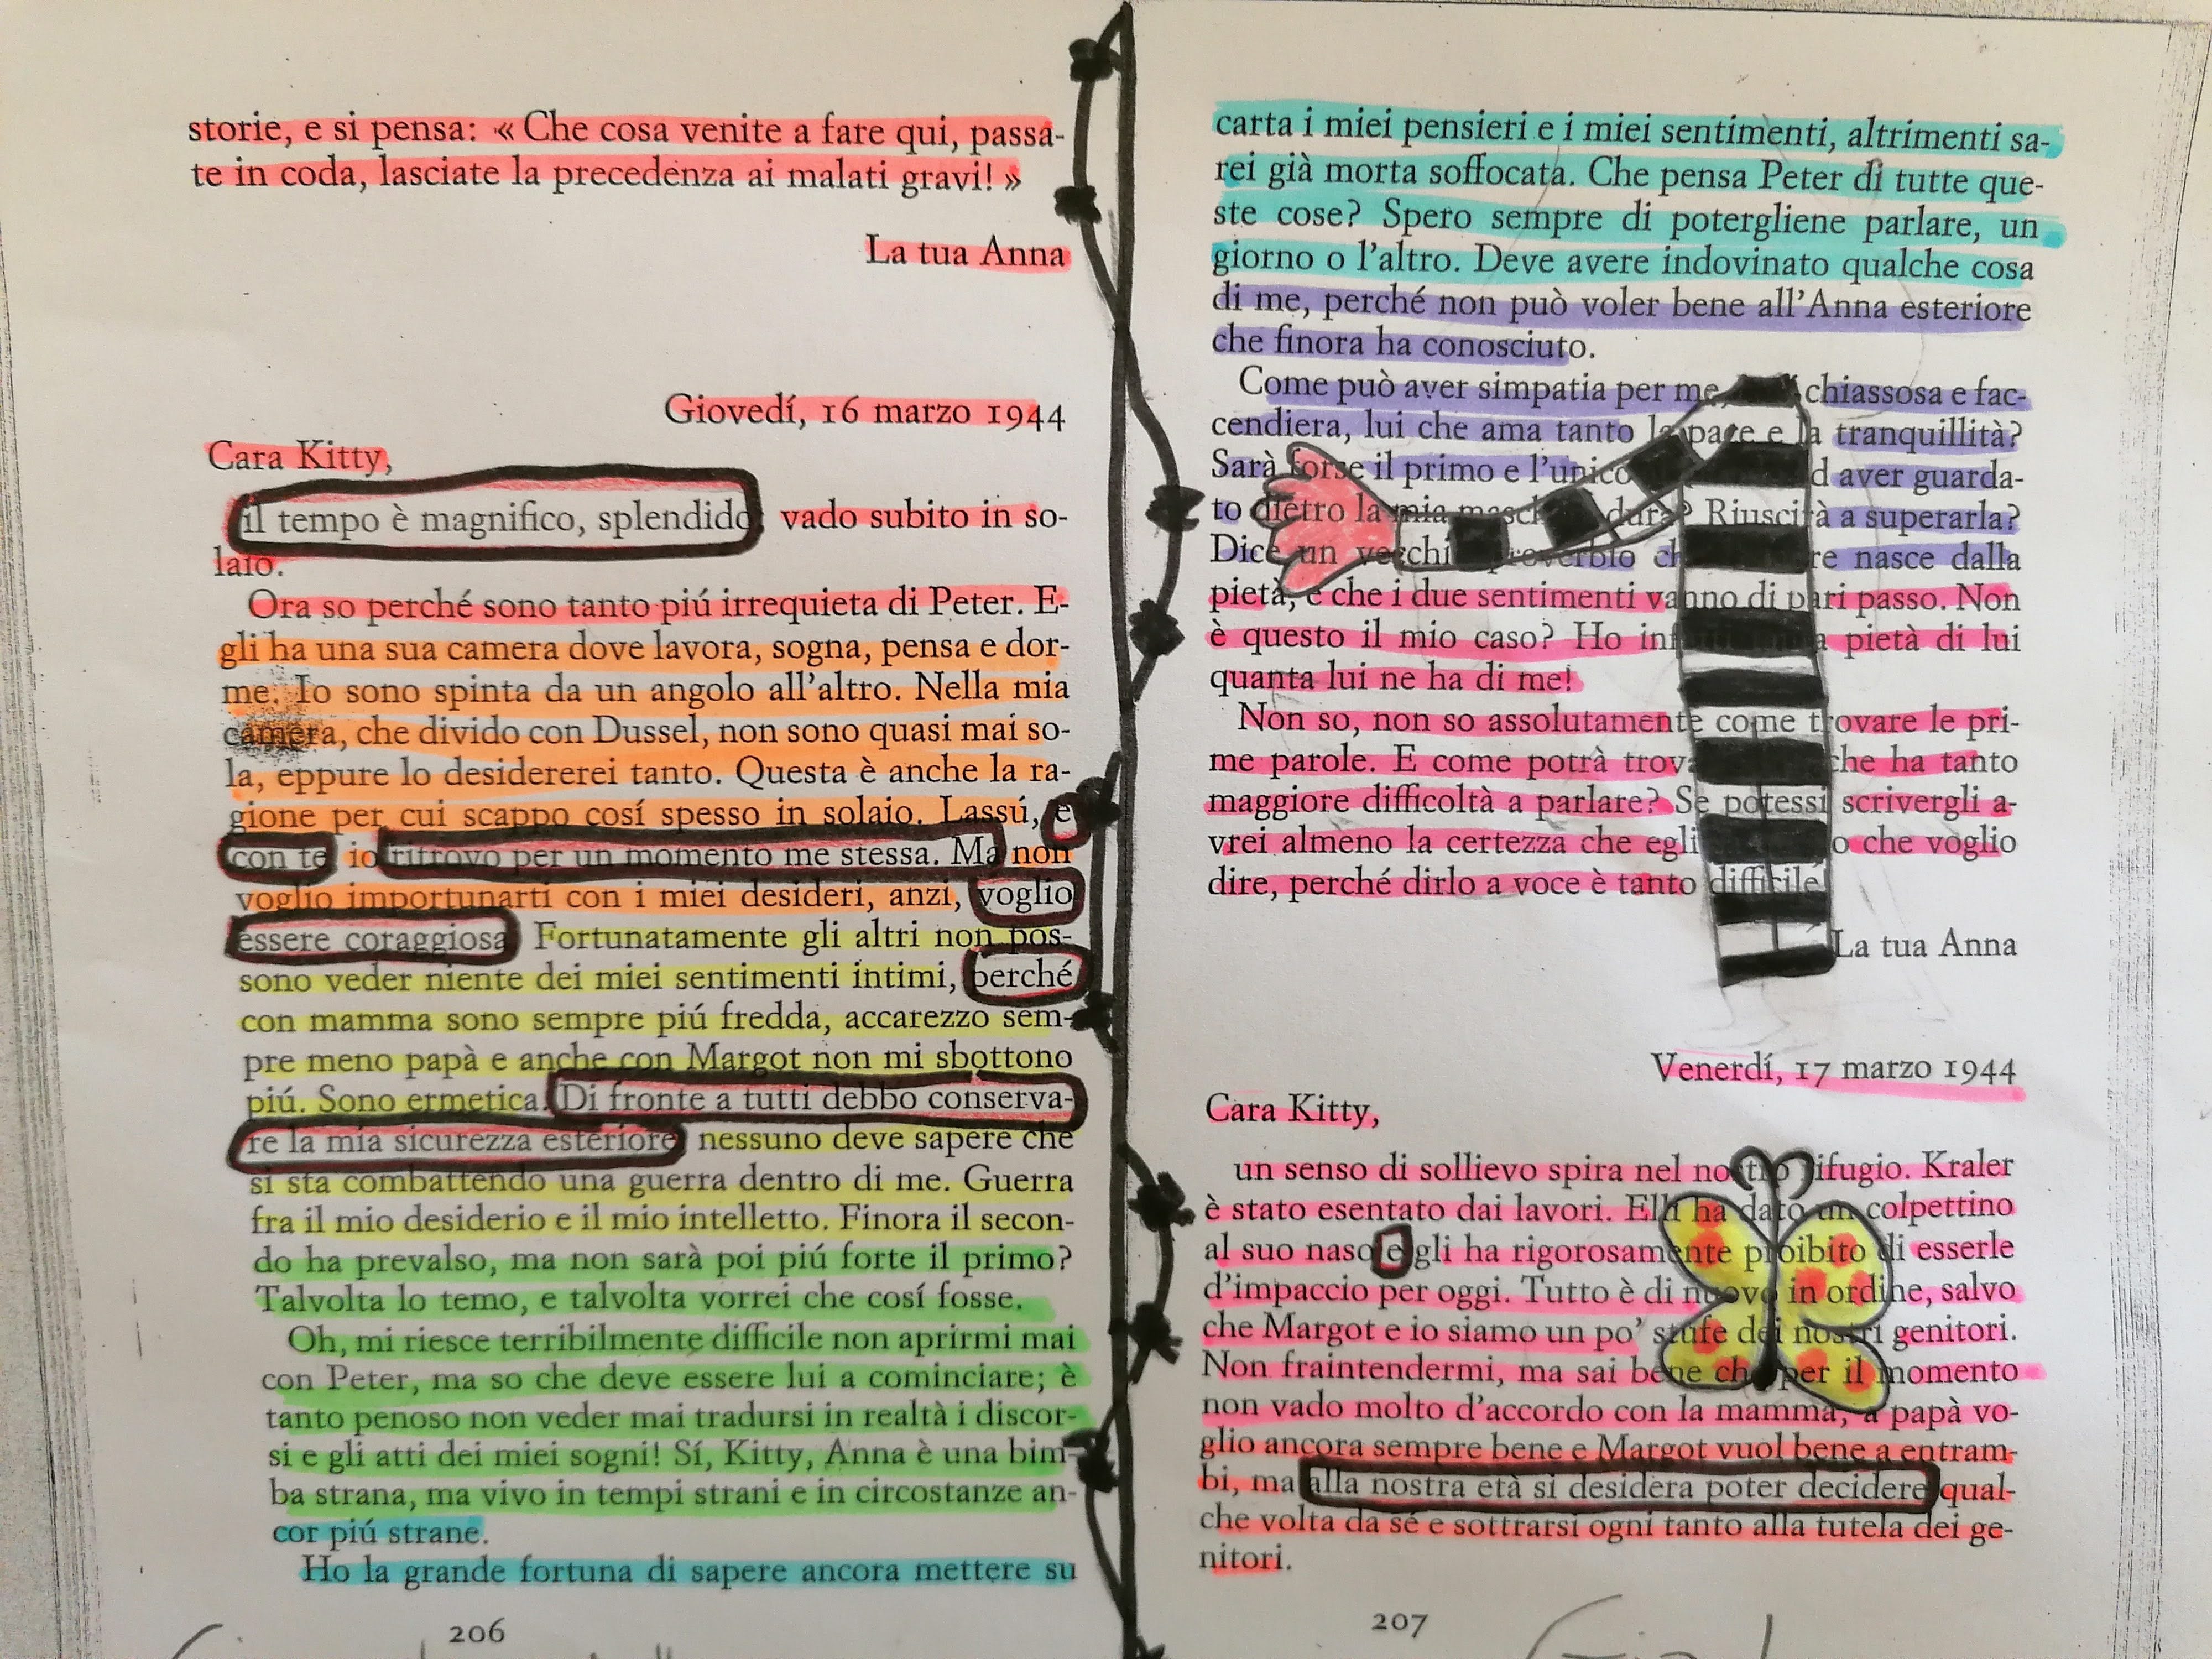 storie, e si pensa: « Che cosa venite a fare qui, passa-
te in coda, lasciate la precedenza ai malati gravi! »
La tua Anna
Giovedí, 16 marzo 1944
Cara Kitty,
il tempo è magnifico, splendido, vado subito in so-
laio.
Ora so perché sono tanto piú irrequieta di Peter. E-
gli ha una sua camera dove lavora, sogna, pensa e dor-
me. Io sono spinta da un angolo all'altro. Nella mia
camera, che divido con Dussel, non sono quasi mai so-
la, eppure lo desidererei tanto. Questa è anche la ra-
gione per cui scappo cosí spesso in solaio. Lassú, e
con te io ritrovo per un momento me stessa. Ma non
voglio importunarti con i miei desideri, anzi, voglio
essere coraggiosa Fortunatamente gli altri non pos-
sono veder niente dei miei sentimenti intimi, perché
con mamma sono sempre piú fredda, accarezzo sem-
pre meno papà e anche con Margot non mi sbottono
piú. Sono ermetica. Di fronte a tutti debbo conserva-
re la mia sicurezza esteriore nessuno deve sapere che
si sta combattendo una guerra dentro di me. Guerra
fra il mio desiderio e il mio intelletto. Finora il secon-
do ha prevalso, ma non sarà poi piú forte il primo?
Talvolta lo temo, e talvolta vorrei che cosí fosse.
Oh, mi riesce terribilmente difficile non aprirmi mai
con Peter, ma so che deve essere lui a cominciare; è
tanto penoso non veder mai tradursi in realtà i discor-
si e gli atti dei miei sogni! Sí, Kitty, Anna è una bim-
ba strana, ma vivo in tempi strani e in circostanze an-
cor piú strane.
Ho la grande fortuna di sapere ancora mettere su
206
carta i miei pensieri e i miei sentimenti, altrimenti sa-
rei già morta soffocata. Che pensa Peter di tutte que-
ste cose? Spero sempre di potergliene parlare, un
giorno o l'altro. Deve avere indovinato qualche cosa
di me, perché non può voler bene all'Anna esteriore
che finora ha conosciuto.
Come può aver simpatia per me, chiassosa e fac-
cendiera, lui che ama tanto la pace e la tranquillità?
Sarà forse il primo e l'unico ad aver guarda-
to dietro la mia dura? Riuscirà a superarla?
Dice un vecchio proverbio nasce dalla
pietà, e che i due sentimenti vanno di pari passo. Non
è questo il mio caso? Ho pietà di lui
quanta lui ne ha di me!
Non so, non so assolutamente come trovare le pri-
me parole. E come potrà che ha tanto
maggiore difficoltà a parlare? Se potessi scrivergli a-
vrei almeno la certezza che egli che voglio
dire, perché dirlo a voce è tanto difficile!
La tua Anna
Venerdí, 17 marzo 1944
Cara Kitty,
un senso di sollievo spira nel nostro rifugio. Kraler
è stato esentato dai lavori. Elli ha dato un colpettino
al suo naso e gli ha rigorosamente proibito di esserle
d'impaccio per oggi. Tutto è di nuovo in ordine, salvo
che Margot e io siamo un po' stufe dei nostri genitori.
Non fraintendermi, ma sai bene che per il momento
non vado molto d'accordo con la mamma, a papà vo-
glio ancora sempre bene e Margot vuol bene a entram-
bi, ma alla nostra età si desidera poter decidere qual-
che volta da sé e sottrarsi ogni tanto alla tutela dei ge-
nitori.
207